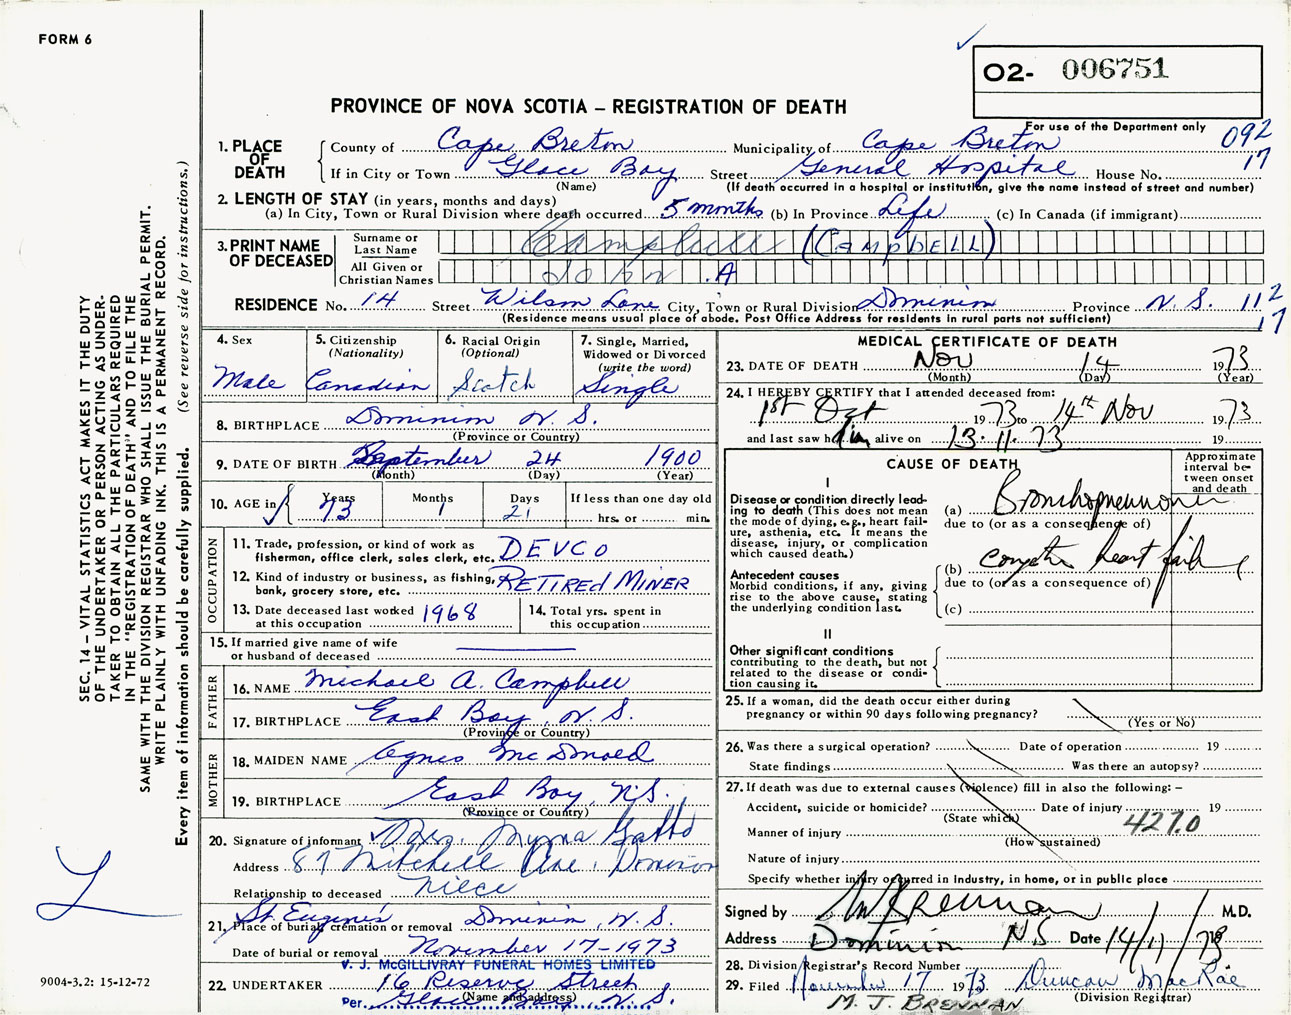 FORM 6
O2- 006751
PROVINCE OF NOVA SCOTIA – REGISTRATION OF DEATH
For use of the Department only
092
17
1. PLACE OF DEATH
County of Cape Breton Municipality of Cape Breton
If in City or Town Glace Bay Street General Hospital House No.
(Name) (If death occurred in a hospital or institution, give the name instead of street and number)
2. LENGTH OF STAY (in years, months and days)
(a) In City, Town or Rural Division where death occurred 5 months (b) In Province Life (c) In Canada (if immigrant)
3. PRINT NAME OF DECEASED
Surname or Last Name Campbell (CAMPBELL)
All Given or Christian Names John .A
RESIDENCE No. 14 Street Wilson Lane City, Town or Rural Division Dominion Province N.S. 112
17
(Residence means usual place of abode. Post Office Address for residents in rural parts not sufficient)
4. Sex
Male
5. Citizenship (Nationality)
Canadian
6. Racial Origin (Optional)
Scotch
7. Single, Married, Widowed or Divorced (write the word)
Single
8. BIRTHPLACE Dominion N.S.
(Province or Country)
9. DATE OF BIRTH September 24 1900
(Month) (Day) (Year)
10. AGE in
Years 73
Months 1
Days 21
If less than one day old
hrs. or min.
OCCUPATION
11. Trade, profession, or kind of work as fisherman, office clerk, sales clerk, etc. DEVCO
12. Kind of industry or business, as fishing, bank, grocery store, etc. RETIRED MINER
13. Date deceased last worked at this occupation 1968
14. Total yrs. spent in this occupation
15. If married give name of wife or husband of deceased
FATHER
16. NAME Michael A. Campbell
17. BIRTHPLACE East Bay, N.S.
(Province or Country)
MOTHER
18. MAIDEN NAME Agnes McDonald
19. BIRTHPLACE East Bay, N.S.
(Province or Country)
20. Signature of informant Mrs. Myrna Gatto
Address 87 Mitchell Ave. Dominion
Relationship to deceased Niece
21. Place of burial, cremation or removal St. Eugene's Dominion, N.S.
Date of burial or removal November 17-1973
V. J. McGILLIVRAY FUNERAL HOMES LIMITED
22. UNDERTAKER 16 Reserve Street
(Name and address)
Per. Glace Bay, N.S.
MEDICAL CERTIFICATE OF DEATH
23. DATE OF DEATH Nov 14 1973
(Month) (Day) (Year)
24. I HEREBY CERTIFY that I attended deceased from:
1st Oct 1973 to 14th Nov 1973
and last saw him alive on 13.11.73 19
CAUSE OF DEATH
Approximate interval between onset and death
I
Disease or condition directly leading to death (This does not mean the mode of dying, e.g., heart failure, asthenia, etc. It means the disease, injury, or complication which caused death.)
(a) Bronchopneumonia
due to (or as a consequence of)
Antecedent causes
Morbid conditions, if any, giving rise to the above cause, stating the underlying condition last.
(b) heart
due to (or as a consequence of)
(c)
II
Other significant conditions contributing to the death, but not related to the disease or condition causing it.
25. If a woman, did the death occur either during pregnancy or within 90 days following pregnancy?
(Yes or No)
26. Was there a surgical operation? Date of operation 19
State findings Was there an autopsy?
27. If death was due to external causes (violence) fill in also the following:–
Accident, suicide or homicide? Date of injury 19
(State which)
427.0
Manner of injury
(How sustained)
Nature of injury
Specify whether injury occurred in industry, in home, or in public place
Signed by M J Brennan M.D.
Address Dominion N.S Date 14/11/73
28. Division Registrar's Record Number
29. Filed November 17 1973 Duncan MacRae
(Division Registrar)
M. J. BRENNAN
SEC. 14 – VITAL STATISTICS ACT MAKES IT THE DUTY
OF THE UNDERTAKER OR PERSON ACTING AS UNDER-
TAKER TO OBTAIN ALL THE PARTICULARS REQUIRED
IN THE "REGISTRATION OF DEATH" AND TO FILE THE
SAME WITH THE DIVISION REGISTRAR WHO SHALL ISSUE THE BURIAL PERMIT.
WRITE PLAINLY WITH UNFADING INK. THIS IS A PERMANENT RECORD.
Every item of information should be carefully supplied. (See reverse side for instructions.)
L
9004-3.2: 15-12-72